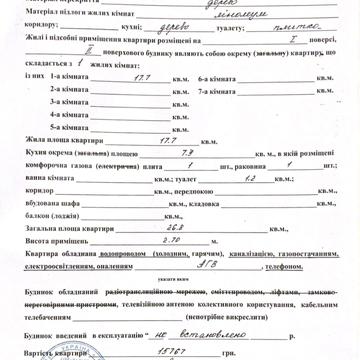 Матеріал підлоги жилих кімнат лінолеум
коридору; кухні; дерево туалету; плитка
Жилі і підсобні приміщення квартири розміщені на I поверсі,
II поверхового будинку являють собою окрему (загальну) квартиру, що
складається з 1 жилих кімнат:
із них 1-а кімната 17.7 кв.м. 6-а кімната кв.м.
2-а кімната кв.м. 7-а кімната кв.м.
3-а кімната кв.м.
4-а кімната кв.м.
5-а кімната кв.м.
Жила площа 17.7 кв.м.
Кухня окрема (загальна) площею 7.4 кв. м., в якій розміщені
комфорочна газова (електрична) плита 1 шт., раковина 1 шт.;
ванна кімната кв.м.; туалет 1.2 кв.м.;
коридор кв.м., передпокою кв.м.,
вбудована шафа кв.м., кладовка кв.м.,
балкон (лоджія) кв.м..
Загальна площа квартири 26.8 кв.м.
Висота приміщень 2.70 м.
Квартира обладнана водопроводом (холодним, гарячим), каналізацією, газопостачанням,
електроосвітленням, опаленням АГВ , телефоном.
указати яким
Будинок обладнаний радіотрансляційною мережою, сміттєпроводом, ліфтами, замково-
переговорними пристроями, телевізійною антеною колективного користування, кабельним
телебаченням (непотрібне викреслити)
Будинок введений в експлуатацію " не встановлено р.
Вартість квартири 15767 грн.
УКРАЇНА